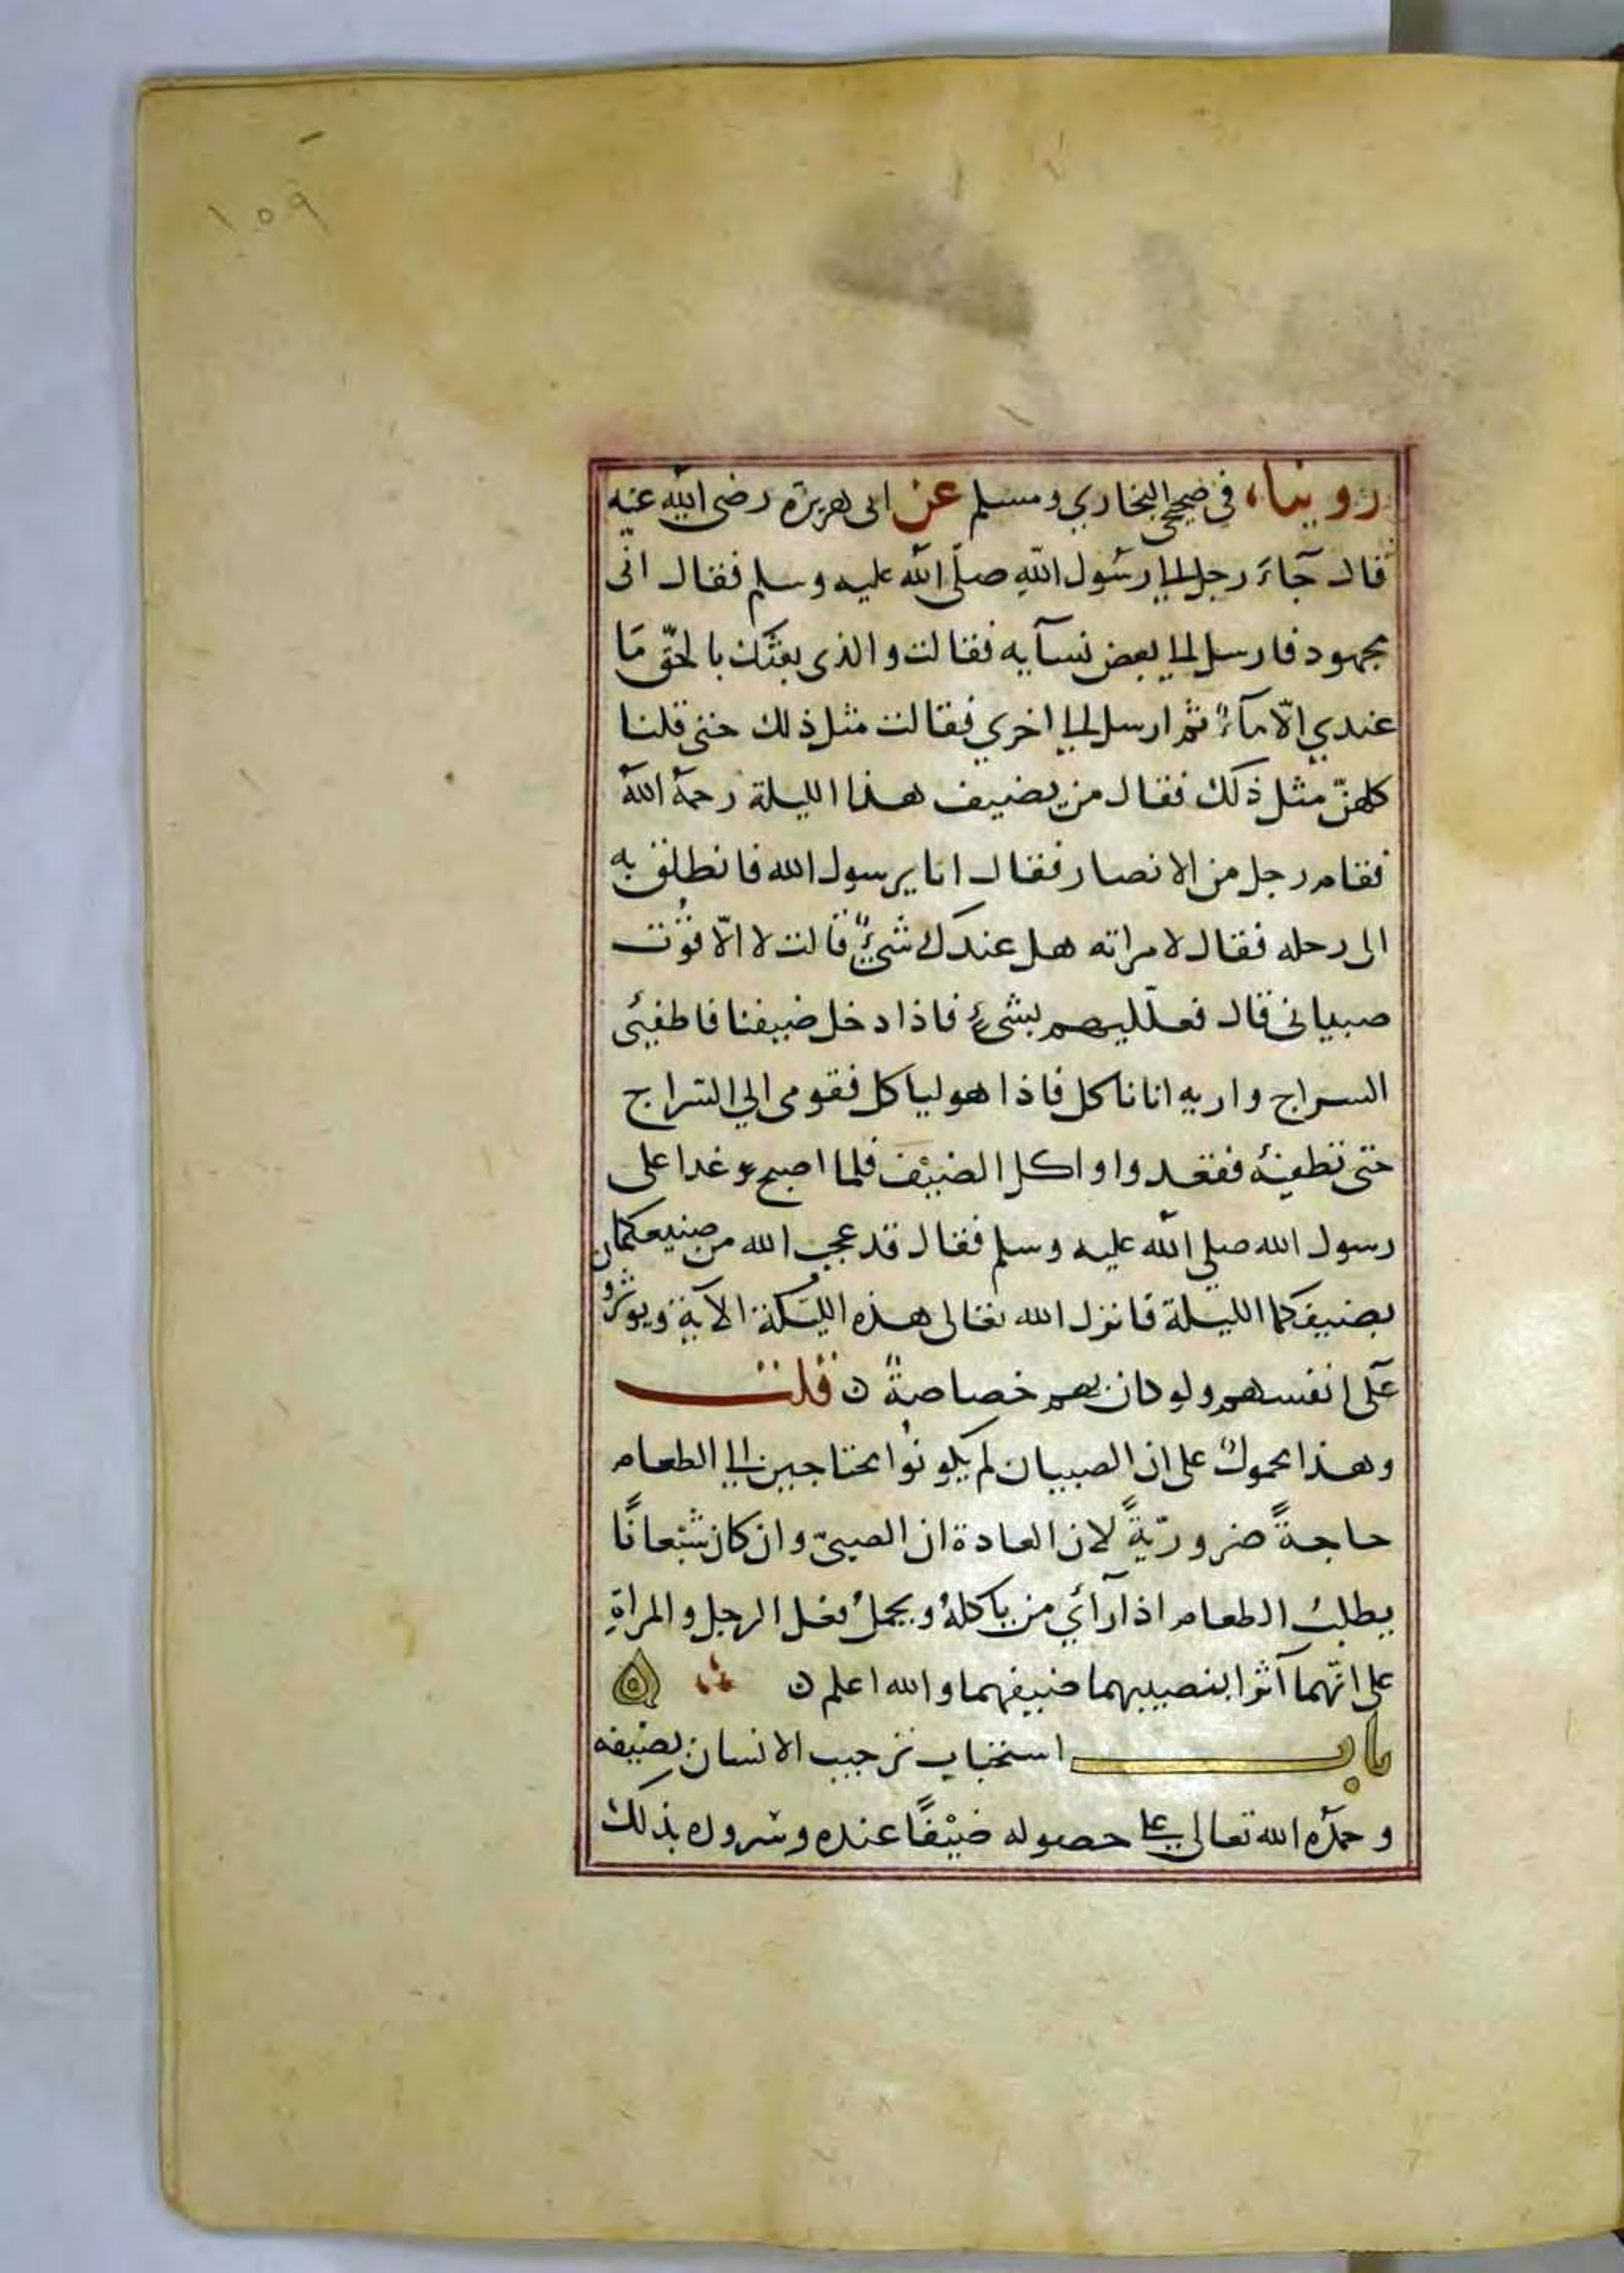 ١٥٩
روينا، في صحيحي البخاري ومسلم عن ابى هريرة رضى الله عنه
قال جآء رجل الى رسول اللهِ صلّى الله عليه وسلم فقال انّى
مجهود فارسل الى بعض نسآيه فقالت والذى بعثك بالحقّ مَا
عندي الّا مآءٌ ثم ارسل الى اخري فقالت مثل ذلك حتى قلنا
كلهنّ مثل ذلك فقال من يضيف هذا الليلة رحمهُ اللهُ
فقام رجل من الانصار فقال انا يرسول الله فانطلق به
الى رحله فقال لامراته هل عندك شيءٌ قالت لا الّا قوْت
صبيانى قال فعلّليهم بشئٍ فاذا دخل ضيفنا فاطفئى
السراج واريه انا ناكل فاذا هو لياكل فقومى الي السّراج
حتى تطفئه فقعدوا واكل الضيْف فلما اصبح وغدا على
رسول الله صلي الله عليه وسلم فقال قد عجب الله من صنيعكما ن
بضيفكما الليلة فانزل الله تعالى هذه الليَلة الآية ويوثرو
على انفسهم ولو كان بهم خصاصةٌ ن قلت
وهذا محمولٌ على ان الصبيان لم يكونُوا محتاجين الى الطعام
حاجةً ضروريّةً لان العادة ان الصبىّ وان كان شبْعانًا
يطلبُ الطعام اذا رآئي من ياكلهُ ويحملُ فعل الرجل والمراةِ
على انّهما آثرا بنصيبهما ضيفهما والله اعلم ن ه
باب استحباب ترحيب الانسان بضيفه
وحمده الله تعالى على حصوله ضيْفًا عنده وسروره بذلك